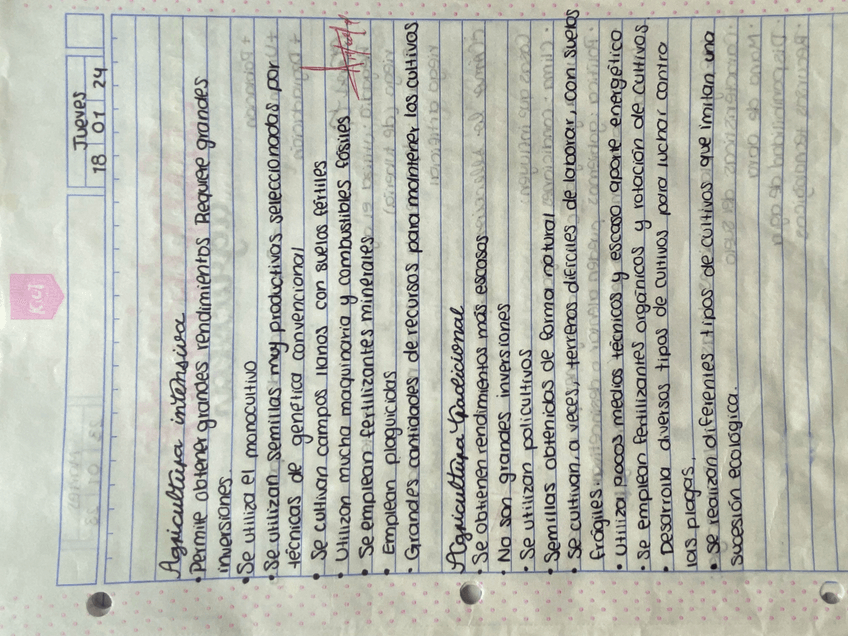 KiUT
Jueves
18 01 24
Agricultura intensiva
• Permite obtener grandes rendimientos Requiere grandes
inversiones.
• Se utiliza el monocultivo
• Se utilizan semillas muy productivas seleccionadas por
técnicas de genética convencional
• Se cultivan campos llanos con suelos fértiles
• Utilizan mucha maquinaria y combustibles fósiles
• Se emplean fertilizantes minerales
• Emplean plaguicidas
• Grandes cantidades de recursos para mantener los cultivos
Agricultura tradicional
• Se obtienen rendimientos más escasos
• No son grandes inversiones
• Se utilizan policultivos
• Semillas obtenidas de forma natural
• Se cultivan, a veces, terrenos difíciles de laborar, con suelos
frágiles
• Utiliza pocos medios técnicos y escaso aporte energético
• Se emplean fertilizantes orgánicos y rotación de cultivos
• Desarrolla diversos tipos de cultivos para luchar contra
las plagas.
• Se realizan diferentes tipos de cultivos que imitan una
sucesión ecológica.